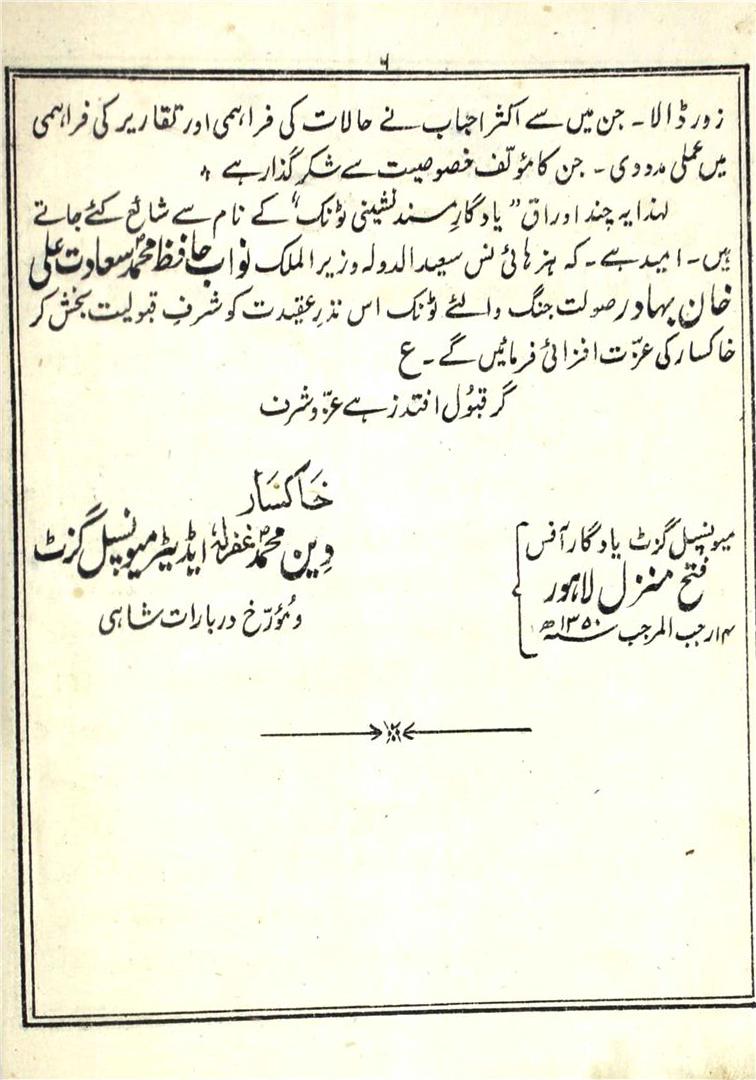 ۶
زور ڈالا۔ جن میں سے اکثر احباب نے حالات کی فراہمی اور تقاریر کی فراہمی
میں عملی مدد دی۔ جن کا مؤلّف خصوصیت سے شکر گذار ہے ؞
لہٰذا یہ چند اوراق "یادگارِ مسند نشینی ٹونک" کے نام سے شائع کئے جاتے
ہیں۔ امید ہے۔ کہ ہز ہائی نس سعید الدولہ وزیر الملک نواب حافظ محمدؐ سعادت علی
خان بہادر صولت جنگ والئے ٹونک اس نذرِ عقیدت کو شرفِ قبولیت بخش کر
خاکسار کی عزّت افزائی فرمائیں گے۔ ع
گر قبُول افتد ز ہے عزّ و شرف
خاکسار
دین محمدؐ غفرلہٗ ایڈیٹر میونسپل گزٹ
و مُؤرّخ دربارات شاہی
میونسپل گزٹ یادگار آفس
فتح منزل لاہور
۱۴ رجب المرجب سنہ ۱۳۵۰ھ